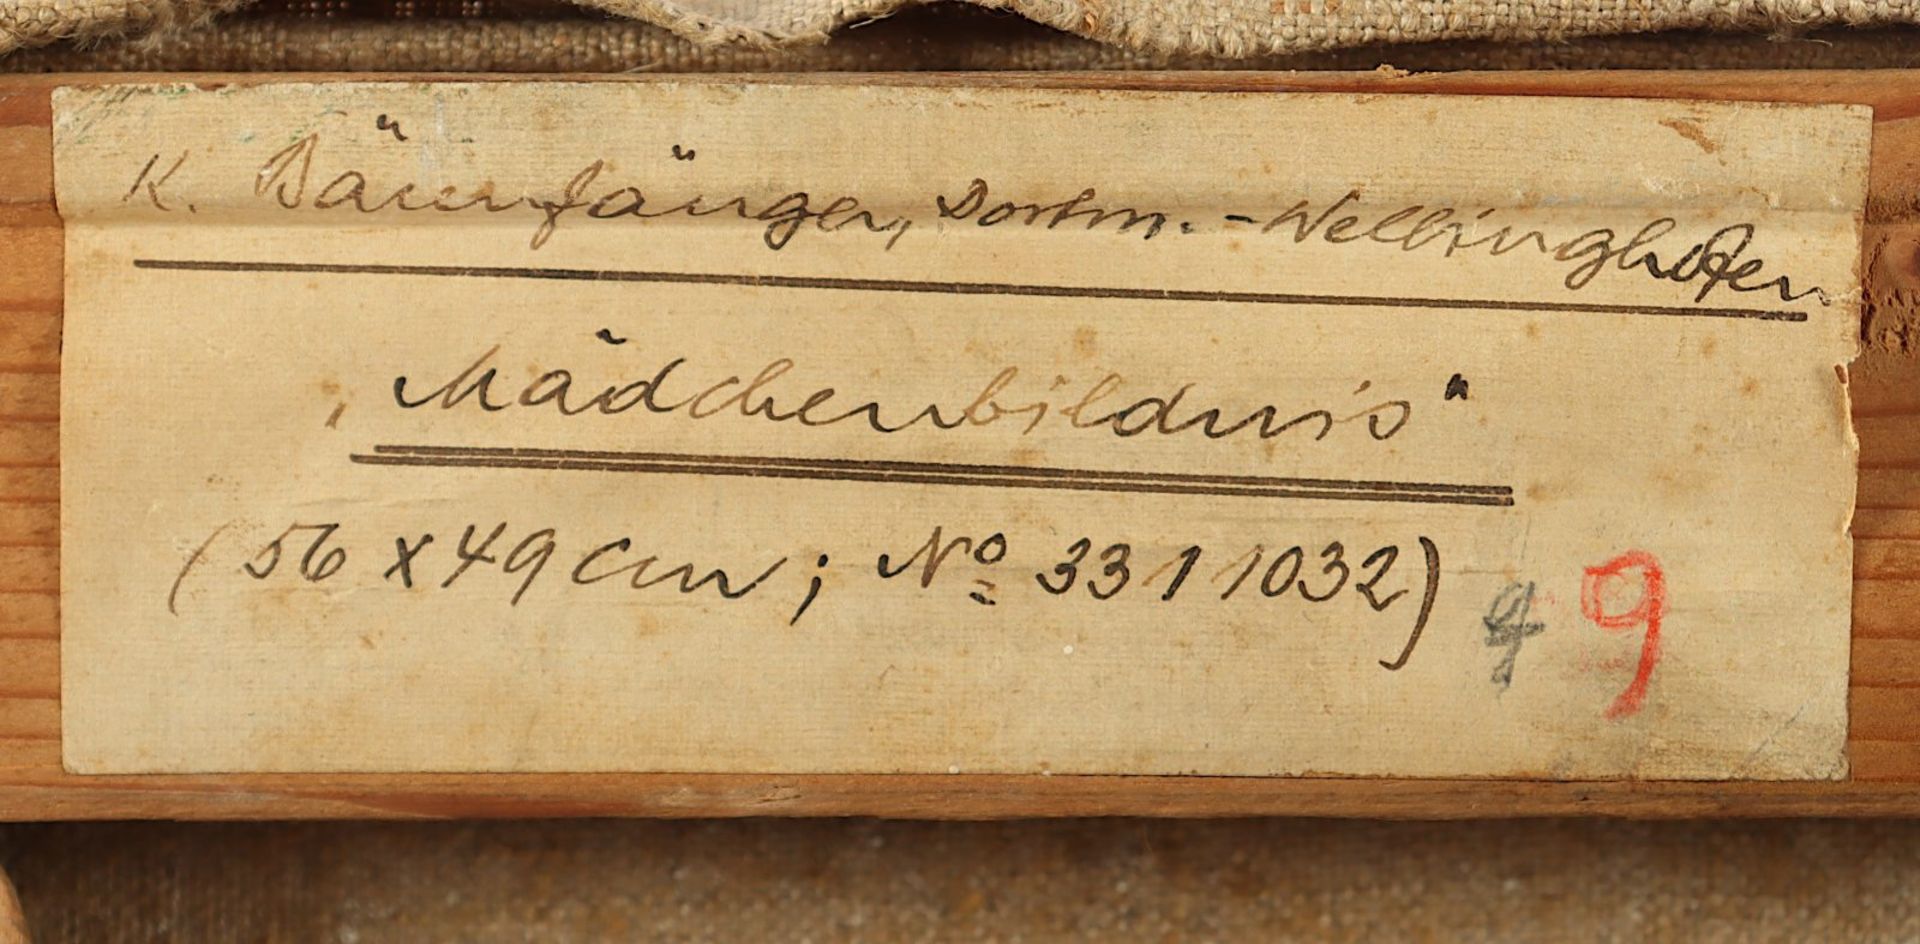 K. Bäumfänger, Dortm.-Wellinghofen
„Mädchenbildnis"
(56 x 49 cm; No 331 1032) 9